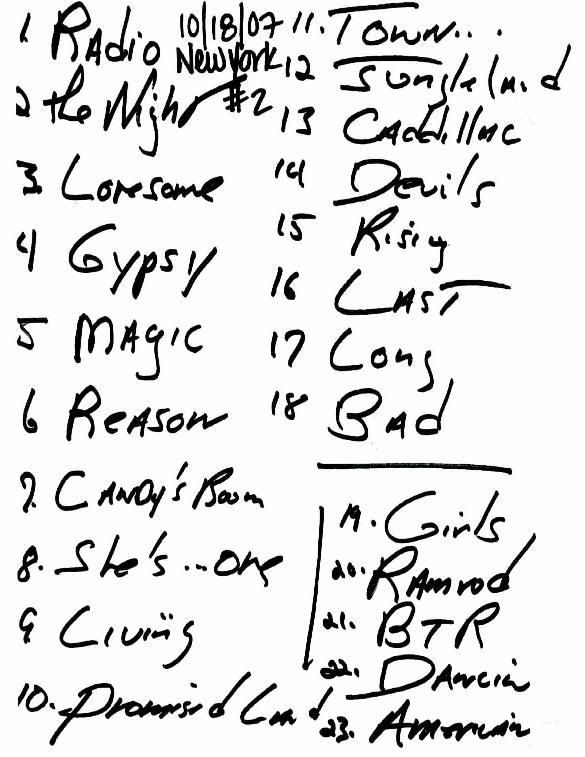 1 Radio
10/18/07
New York
#2
2 the Night
3. Lonesome
4 Gypsy
5 Magic
6 Reason
7. Candy's Room
8. She's...one
9 Living
10. Promised Land
11. Town...
12 Jungleland
13 Caddillac
14 Devils
15 Rising
16 Last
17 Long
18 Bad
19. Girls
20. Ramrod
21. BTR
22. Dancin
23. American